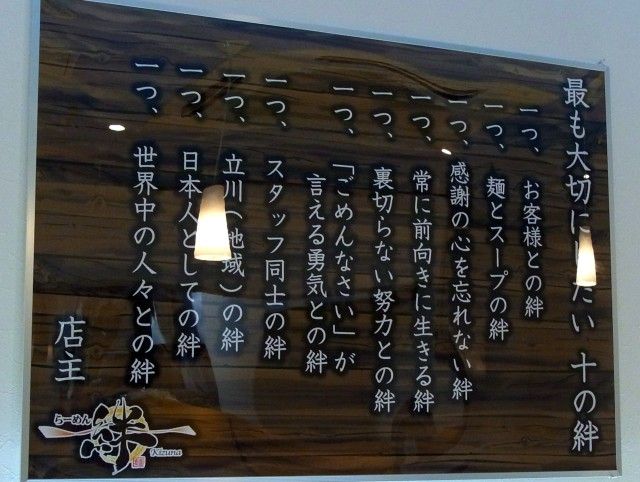 最も大切にしたい 十の絆
一つ、お客様との絆
一つ、麺とスープの絆
一つ、感謝の心を忘れない絆
一つ、常に前向きに生きる絆
一つ、裏切らない努力との絆
一つ、「ごめんなさい」が
言える勇気との絆
一つ、スタッフ同士の絆
一つ、立川(地域)の絆
一つ、日本人としての絆
一つ、世界中の人々との絆
店主
らーめん
絆
Kizuna